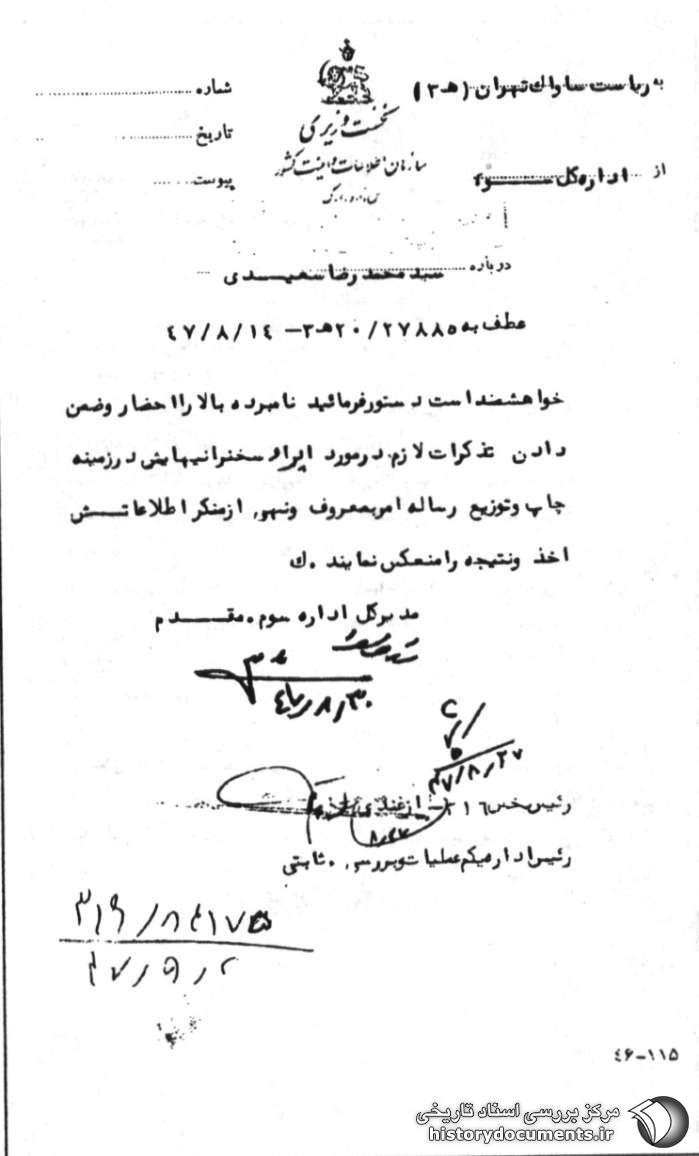 به ریاست ساواک تهران (هـ ۳)
شماره
نخست وزیری
تاریخ
سازمان اطلاعات و امنیت کشور
پیوست
از اداره کل سوم
درباره سید محمد رضا سعیدی
عطف به ۲۷۸۸۵/ ۲۰هـ ۳- ۴۷/۸/۱۴
خواهشمند است دستور فرمائید نامبرده بالا را احضار و ضمن
دادن تذکرات لازم در مورد ایراد سخنرانیهایش در زمینه
چاپ و توزیع رساله امر بمعروف و نهی از منکر اطلاعاتش
اخذ و نتیجه را منعکس نمایند .ک
مدیر کل اداره سوم . مقدم
۴۷/۸/۳۰
۴۷/۸/۲۷
رئیس بخش ۳۱۶- ازغندی
رئیس اداره یکم عملیات و بررسی . ثابتی
۴۷/۹/۲
۴۶-۱۱۵
مرکز بررسی اسناد تاریخی
historydocuments.ir